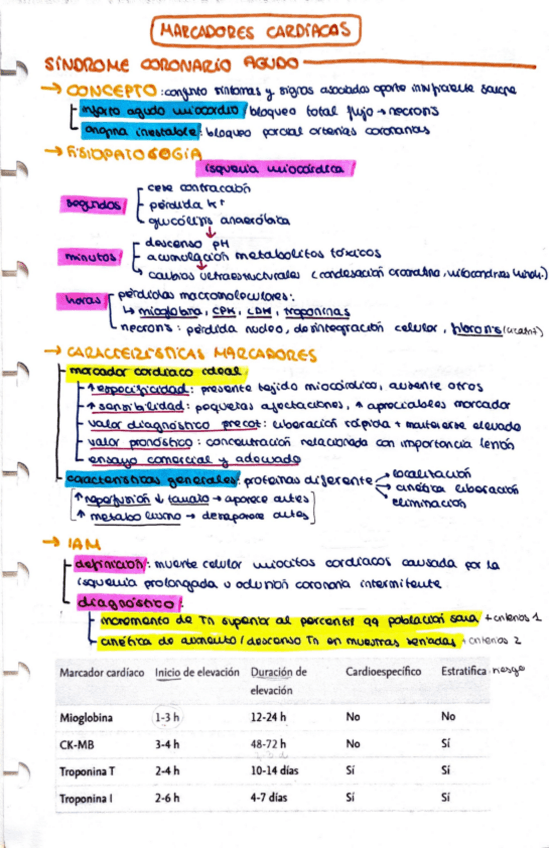 MARCADORES CARDÍACOS
SÍNDROME CORONARIO AGUDO
→ CONCEPTO: conjunto síntomas y signos asociados aporte insuficiente sangre
infarto agudo miocardio / bloqueo total flujo → necrosis
angina inestable: bloqueo parcial arterias coronarias
→ FISIOPATOLOGÍA
isquemia miocárdica
segundos
cese contracción
pérdida K+
glucólisis anaeróbica
minutos
descenso pH
acumulación metabolitos tóxicos
cambios ultraestructurales (condensación cromatina, mitocondrias
horas
pérdidas macromoleculares:
↳ mioglobina, CPK, LDH, troponinas
necrosis: pérdida núcleo, desintegración celular, fibrosis
→ CARACTERÍSTICAS MARCADORES
marcador cardíaco ideal:
↑ especificidad: presente tejido miocárdico, ausente otros
↑ sensibilidad: pequeñas afectaciones, ↑ apreciables marcador
valor diagnóstico precoz: liberación rápida + mantenerse elevado
valor pronóstico: concentración relacionada con importancia lesión
ensayo comercial y adecuado
características generales: proteínas diferente
localización
cinética liberación
eliminación
↑ reperfusión ↓ tamaño → aparece antes
↑ metabolismo → desaparece antes
→ IAM
definición: muerte celular miocitos cardíacos causada por la
isquemia prolongada u oclusión coronaria intermitente
diagnóstico:
incremento de Tn superior al percentil 99 población sana + criterios 1
cinética de aumento / descenso Tn en muestras seriadas + criterios 2
Marcador cardíaco Inicio de elevación Duración de elevación Cardioespecífico Estratifica riesgo
Mioglobina 1-3 h 12-24 h No No
CK-MB 3-4 h 48-72 h No Sí
Troponina T 2-4 h 10-14 días Sí Sí
Troponina I 2-6 h 4-7 días Sí Sí